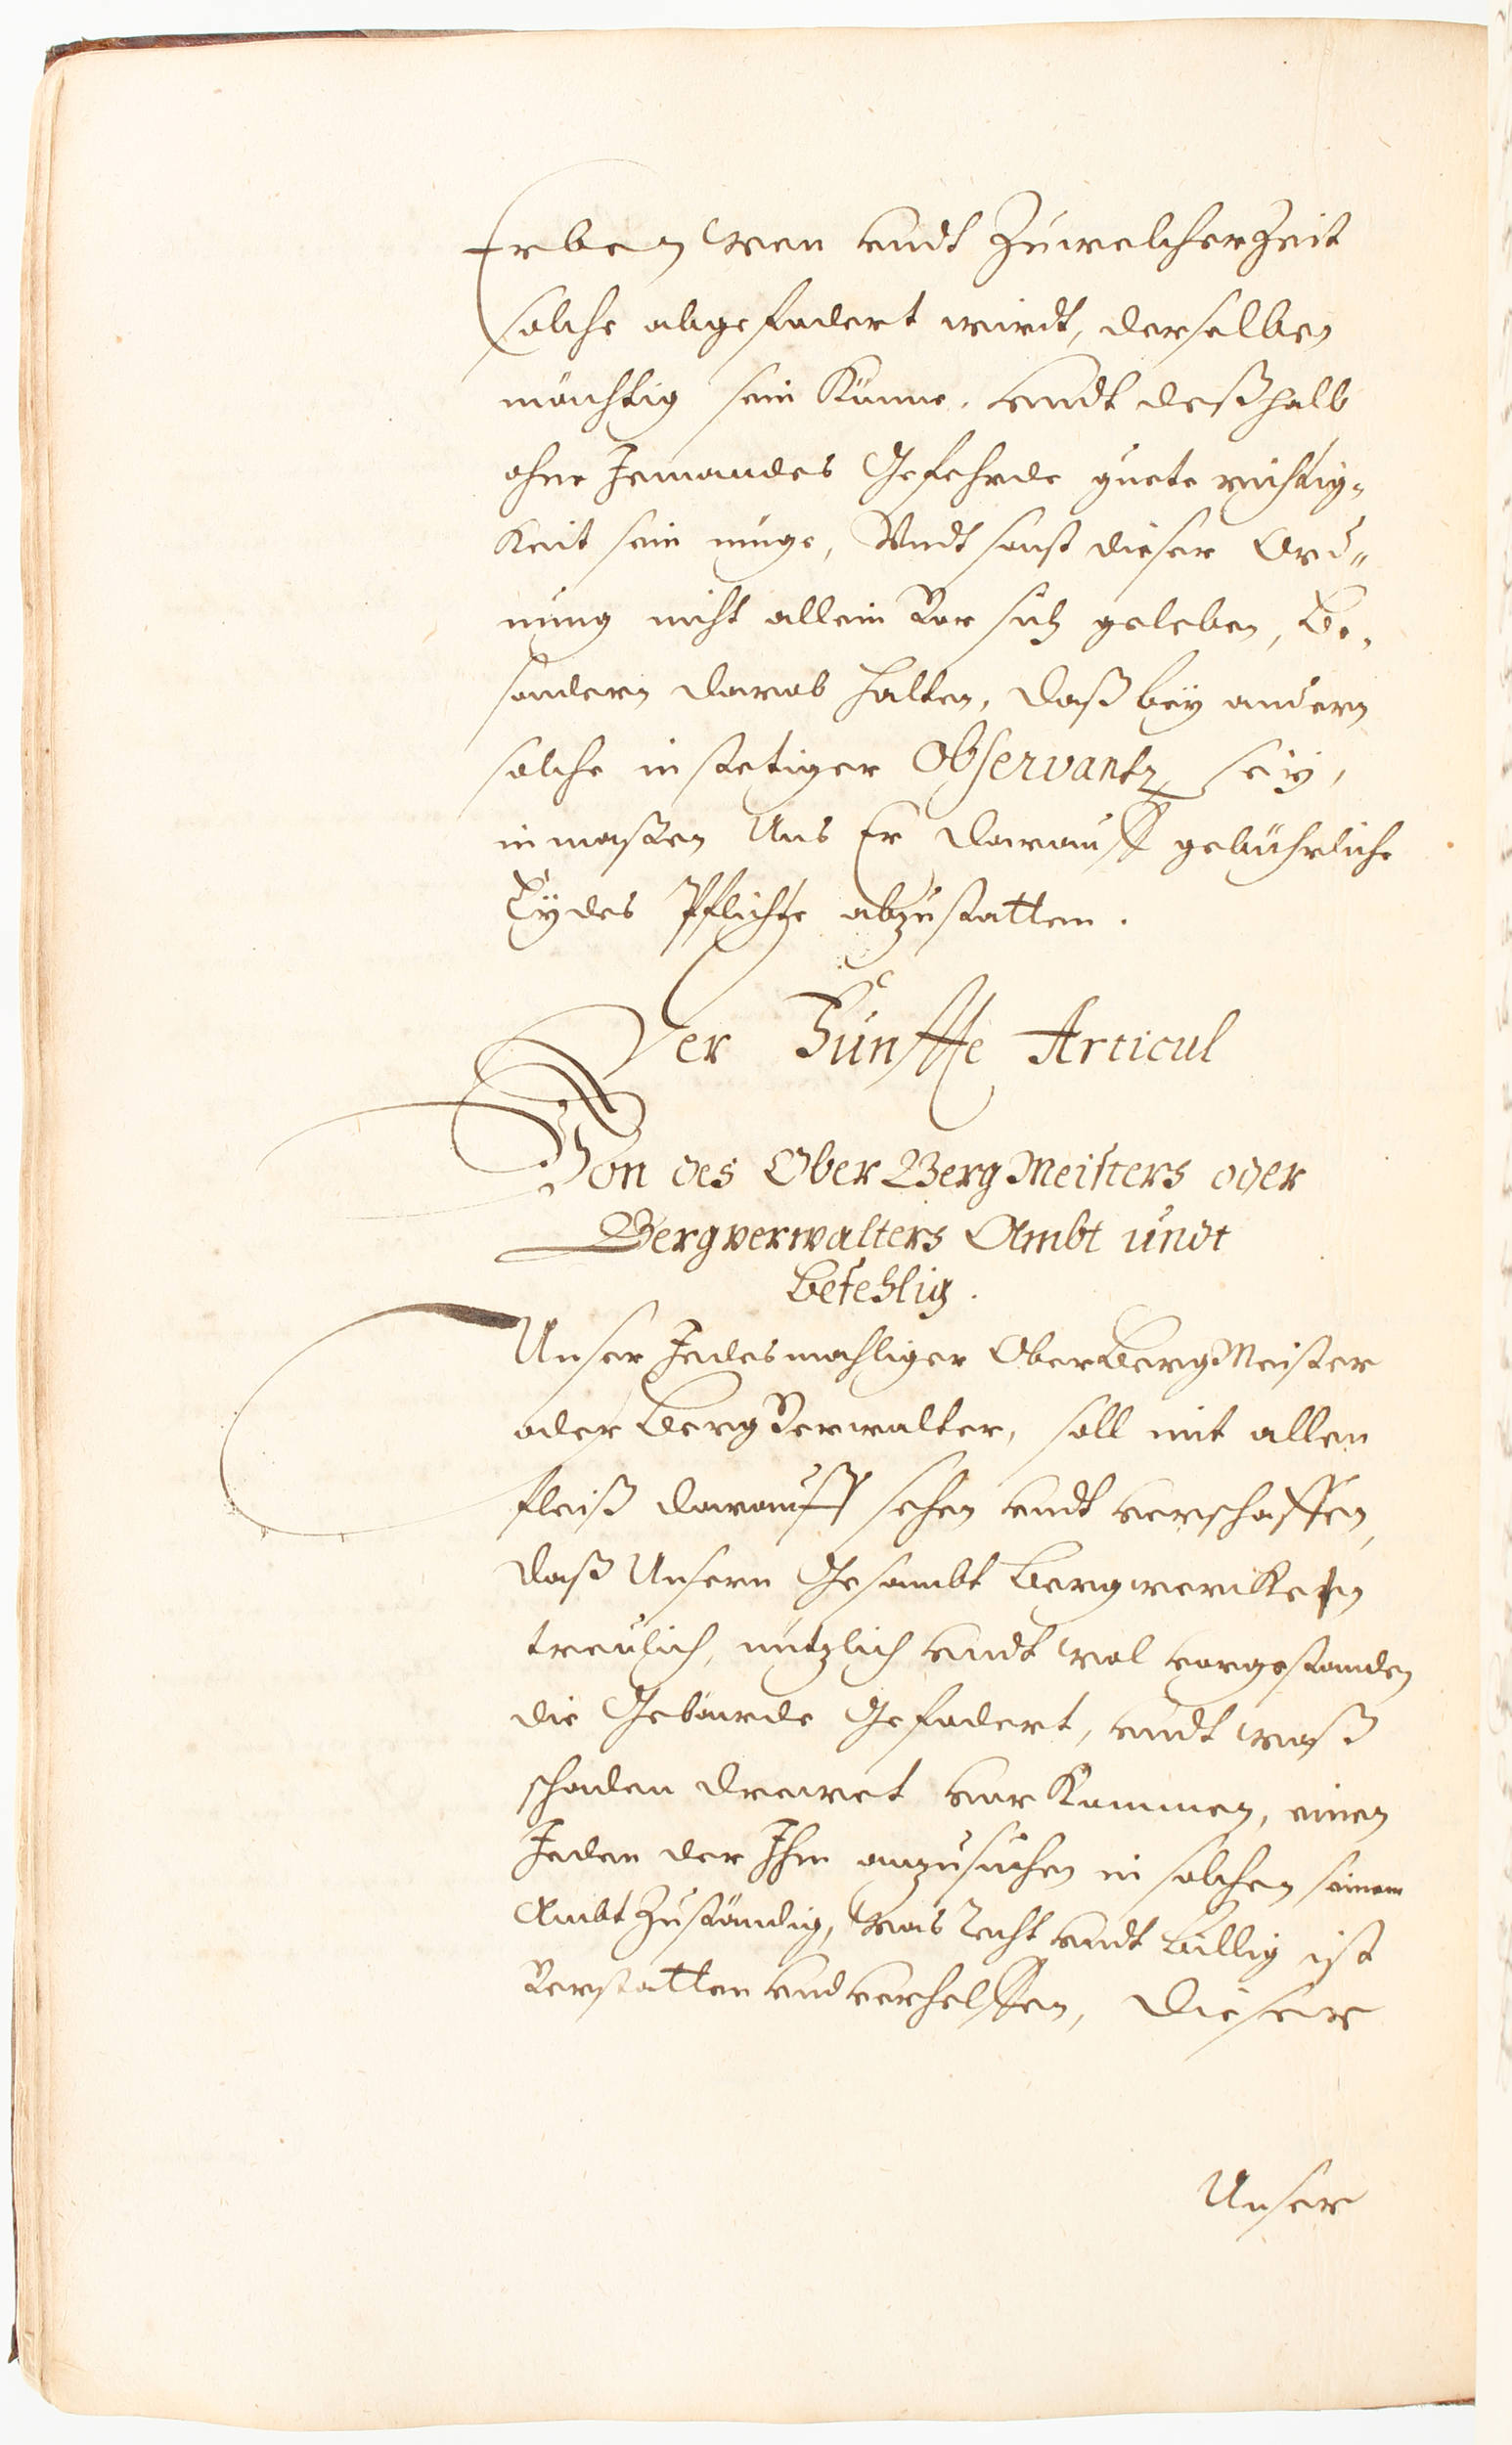 Erben wen undt Zu welcher Zeit
solche abgefodert wirdt, derselben
mächtig sein könne, undt deßhalb
ohne Jemandes Gefehrde guete richtig-
keit sein müge, Undt sonst dieser Ord„
nung nicht allein Vor sich geleben, Be-
sondern darob halten, daß bey andern
solche in stetiger Observantz sey,
inmaßen Uns Er darauff gebührliche
Eydes Pflichte abzustatten.
Der Fünffte Articul
Von des Ober Berg Meisters oder
Bergverwalters Ambt undt
Befehlig.
Unser Jedesmahliger OberBergMeister
oder Berg Verwalter, soll mit allen
fleiß darauff sehen undt verschaffen,
daß Unsern Gesambt Bergwercken
treulich, nützlich undt wol vorgestanden
die Gebäude Gefodert, undt waß
schaden drewet vorkommen, einen
Jeden der Ihm anzusuchen in solchen seinem
Ambt Zuständig, Was Recht undt billig ist
Verstatten und verhelffen, Dieser
Unser